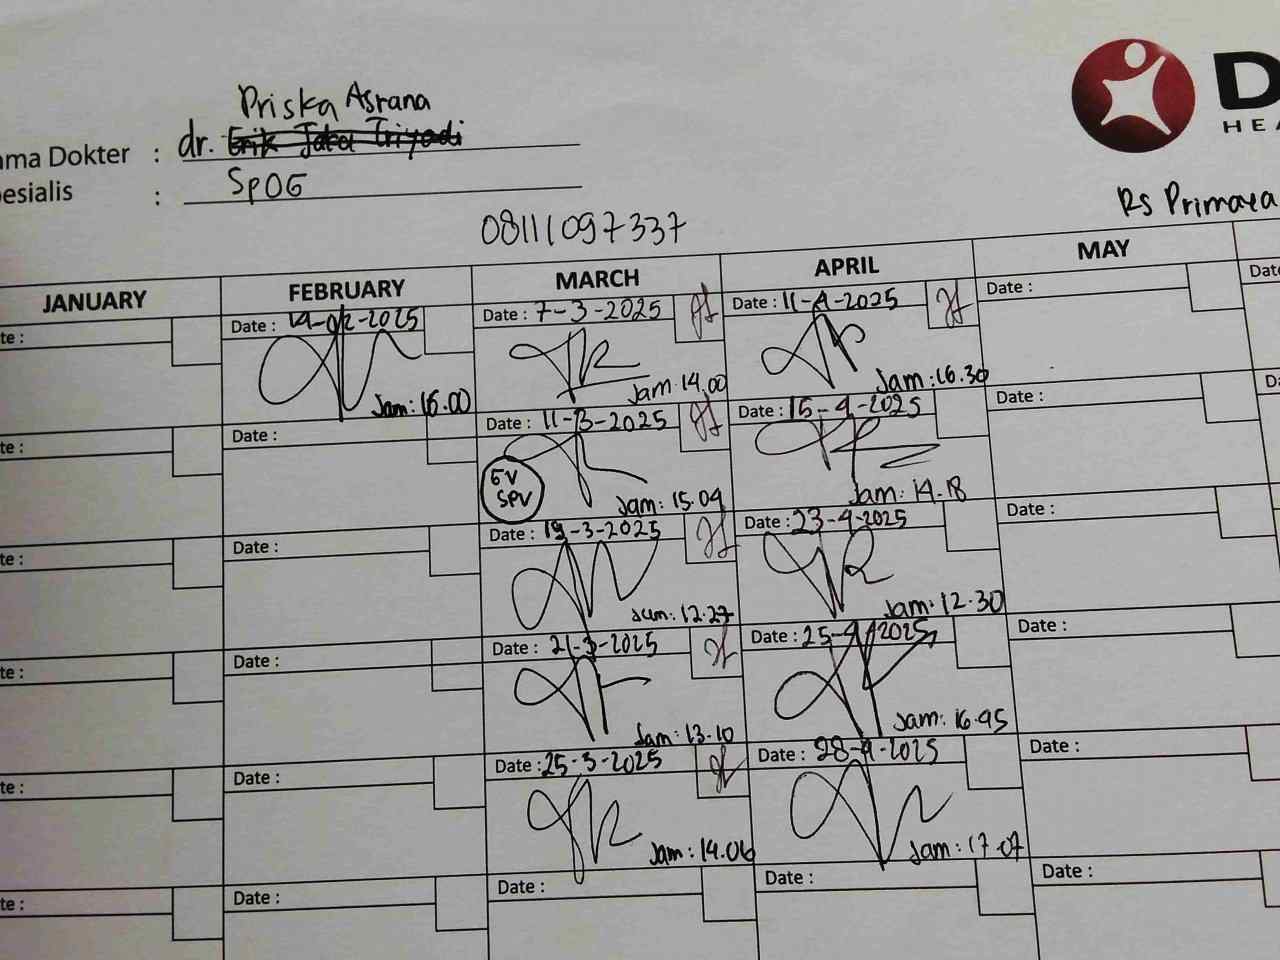 Priska Asrana
ama Dokter : dr. Erik Jaka Triyadi
esialis : SpOG
08111097337
D
HEA
RS Primaya
JANUARY FEBRUARY MARCH APRIL MAY
te : Date : 14-02-2025 Date : 7-3-2025 Date : 11-4-2025 Date : Date
Jam: 16.00 Jam: 14.00 Jam: 16.30
te : Date : Date : 11-3-2025 Date : 15-4-2025 Date : Da
GV
SPV
Jam: 15.04 Jam: 14.18
te : Date : Date : 19-3-2025 Date : 23-4-2025 Date :
Jam: 12.27 Jam: 12.30
te : Date : Date : 21-3-2025 Date : 25-4-2025 Date :
Jam: 13.10 Jam: 16.45
te : Date : Date : 25-3-2025 Date : 28-4-2025 Date :
Jam: 14.06 Jam: 17.07
te : Date : Date : Date : Date :